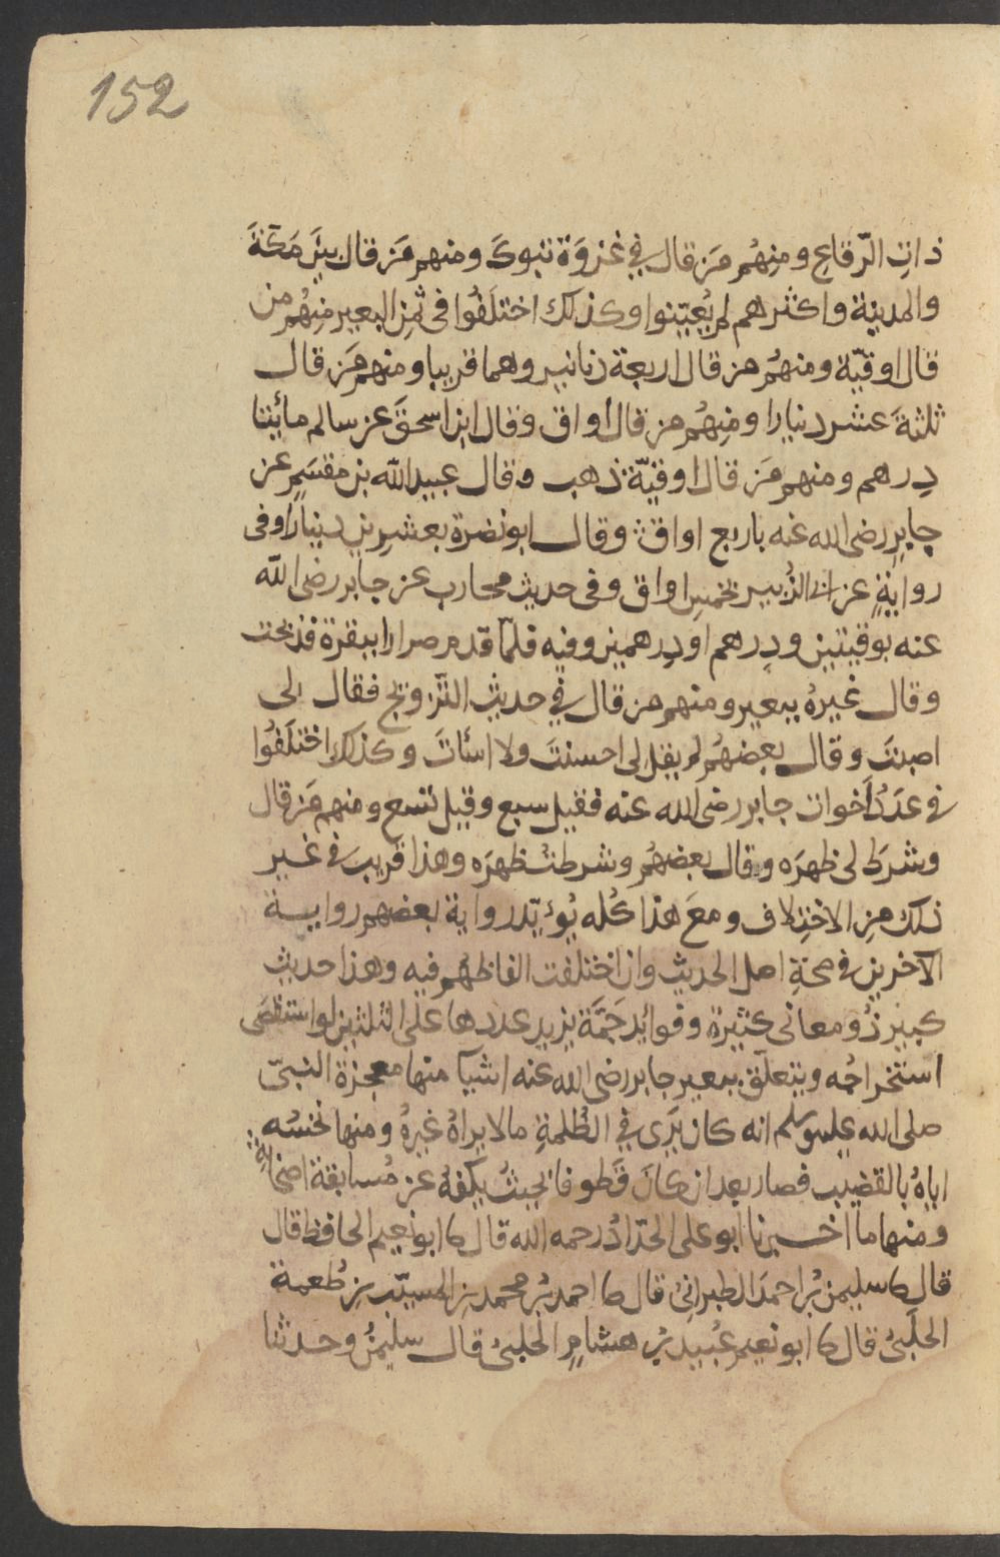 152
ذاتِ الرّقاعِ ومنِهُم مَن قال في غَزوَة تَبوكَ ومنهم مَن قال بَينَ مَكّةَ
والمدينة واكثرهم لم يُعيّنوا وكذلك اختلَفُوا فى ثمنِ البعير منِهُم من
قال اوقيّة ومنهُم من قال اربعة دنانير وهما قريبا ومنهم مَن قال
ثلثةَ عشر دينارا ومنِهُم من قال أواق وقال ابن اسحقَ عن سالم مائيتا
دِرهم ومنهم مَن قال اوقيّة ذهب وقال عبيدالله بن مقسَمٍ عن
جابرٍ رضى الله عنه باربع اواق وقال ابو نضرة بعشرِين دينارا وفى
روايةٍ عن ابى الزُبير بخمسِ اواق وفى حديث محارب عن جابر رضى الله
عنه بوقيتين ودِرهم او دِرهمين وفيه فلمّا قدم صرارا ببقرة فذبحت
وقال غيرهُ ببعير ومنهم من قال في حديثِ التزويج فقال لى
اصبتَ وقال بعضهُم لم يقل لى احسنتَ ولا اسأتَ وكذلك اختلَفُوا
فى عدَدُ أخوات جابر رضى الله عنه فقيل سبع وقيل تسع ومنهم مَن قال
وشرَط لى ظهرَه وقال بعضهُم وشرطتُ ظهرَه وهذا قريب فى غير
ذلك مِن الاختِلاف ومعَ هذا كُله يُوئيّد رواية بعضهم رواية
الآخرين فى صحّةِ اصل الحديث وان اختلفت الفاظهم فيه وهذا حديث
كبير ذُو معانى كثيرة وفوائد جَمَّة يزيد عددها على الثلثين لو استقصَى
استخراجُه ويتعلّق ببعير جابر رضى الله عنه اشيآ منها معجزة النبىّ
صلى الله عليه وسلم انه كان يَرَى في الظُلمةِ ما لا يراهُ غيرهُ ومنها نخسُه
اياهُ بالقضيب فصار بعد ان كانَ قَطوفا بحيثُ يكفهُ عن مُسابقة اصحابه
ومنها ما اخبرنا ابو على الحدّادُ رحمه الله قال كا ابو نعيم الحافظ قال
قال كا سليمن بْن احمدَ الطبرانى قال كا احمد بْن محمد بن المسيّب بن طُعمة
الحلَبىُ قال كا ابو نعيم عُبيد بْن هشامٍ الحلبىُ قال سليمنُ وحدثنا